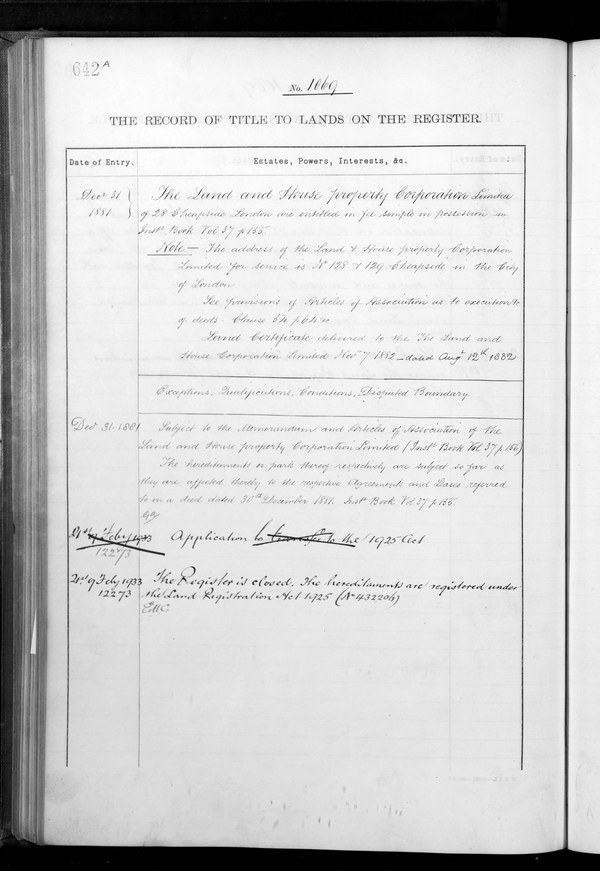 642 A
No. 1069
THE RECORD OF TITLE TO LANDS ON THE REGISTER.
Date of Entry. Estates, Powers, Interests, &c.
Decr 31 The Land and House property Corporation Limited
1881 of 28 Cheapside London are entitled in fee simple in possession in
Inst. Book Vol 37 p 155.
Note — The address of the Land & House property Corporation
Limited for service is No 128 & 129 Cheapside in the City
of London
See provisions of Articles of Association as to execution
of deeds. Clause
Land Certificate delivered to the The Land and
House Corporation Limited Novr 7 1882 – dated Augt 12th 1882
Exceptions, Qualifications, Conditions, Disputed Boundary.
Decr 31. 1881 Subject to the Memorandum and Articles of Association of the
Land and House property Corporation Limited (Inst. Book Vol 37 p 156)
The hereditaments or parts thereof respectively are subject so far as
they are affected thereby to the respective Agreements and Leases referred
to in a deed dated 30th December 1881. Inst. Book Vol 37 p 155.
Feby 1933 Application to transfer to the 1925 Act
12273
9 Feby 1933 The Register is closed. The hereditaments are registered under
12273 the Land Registration Act 1925 (No 432206)